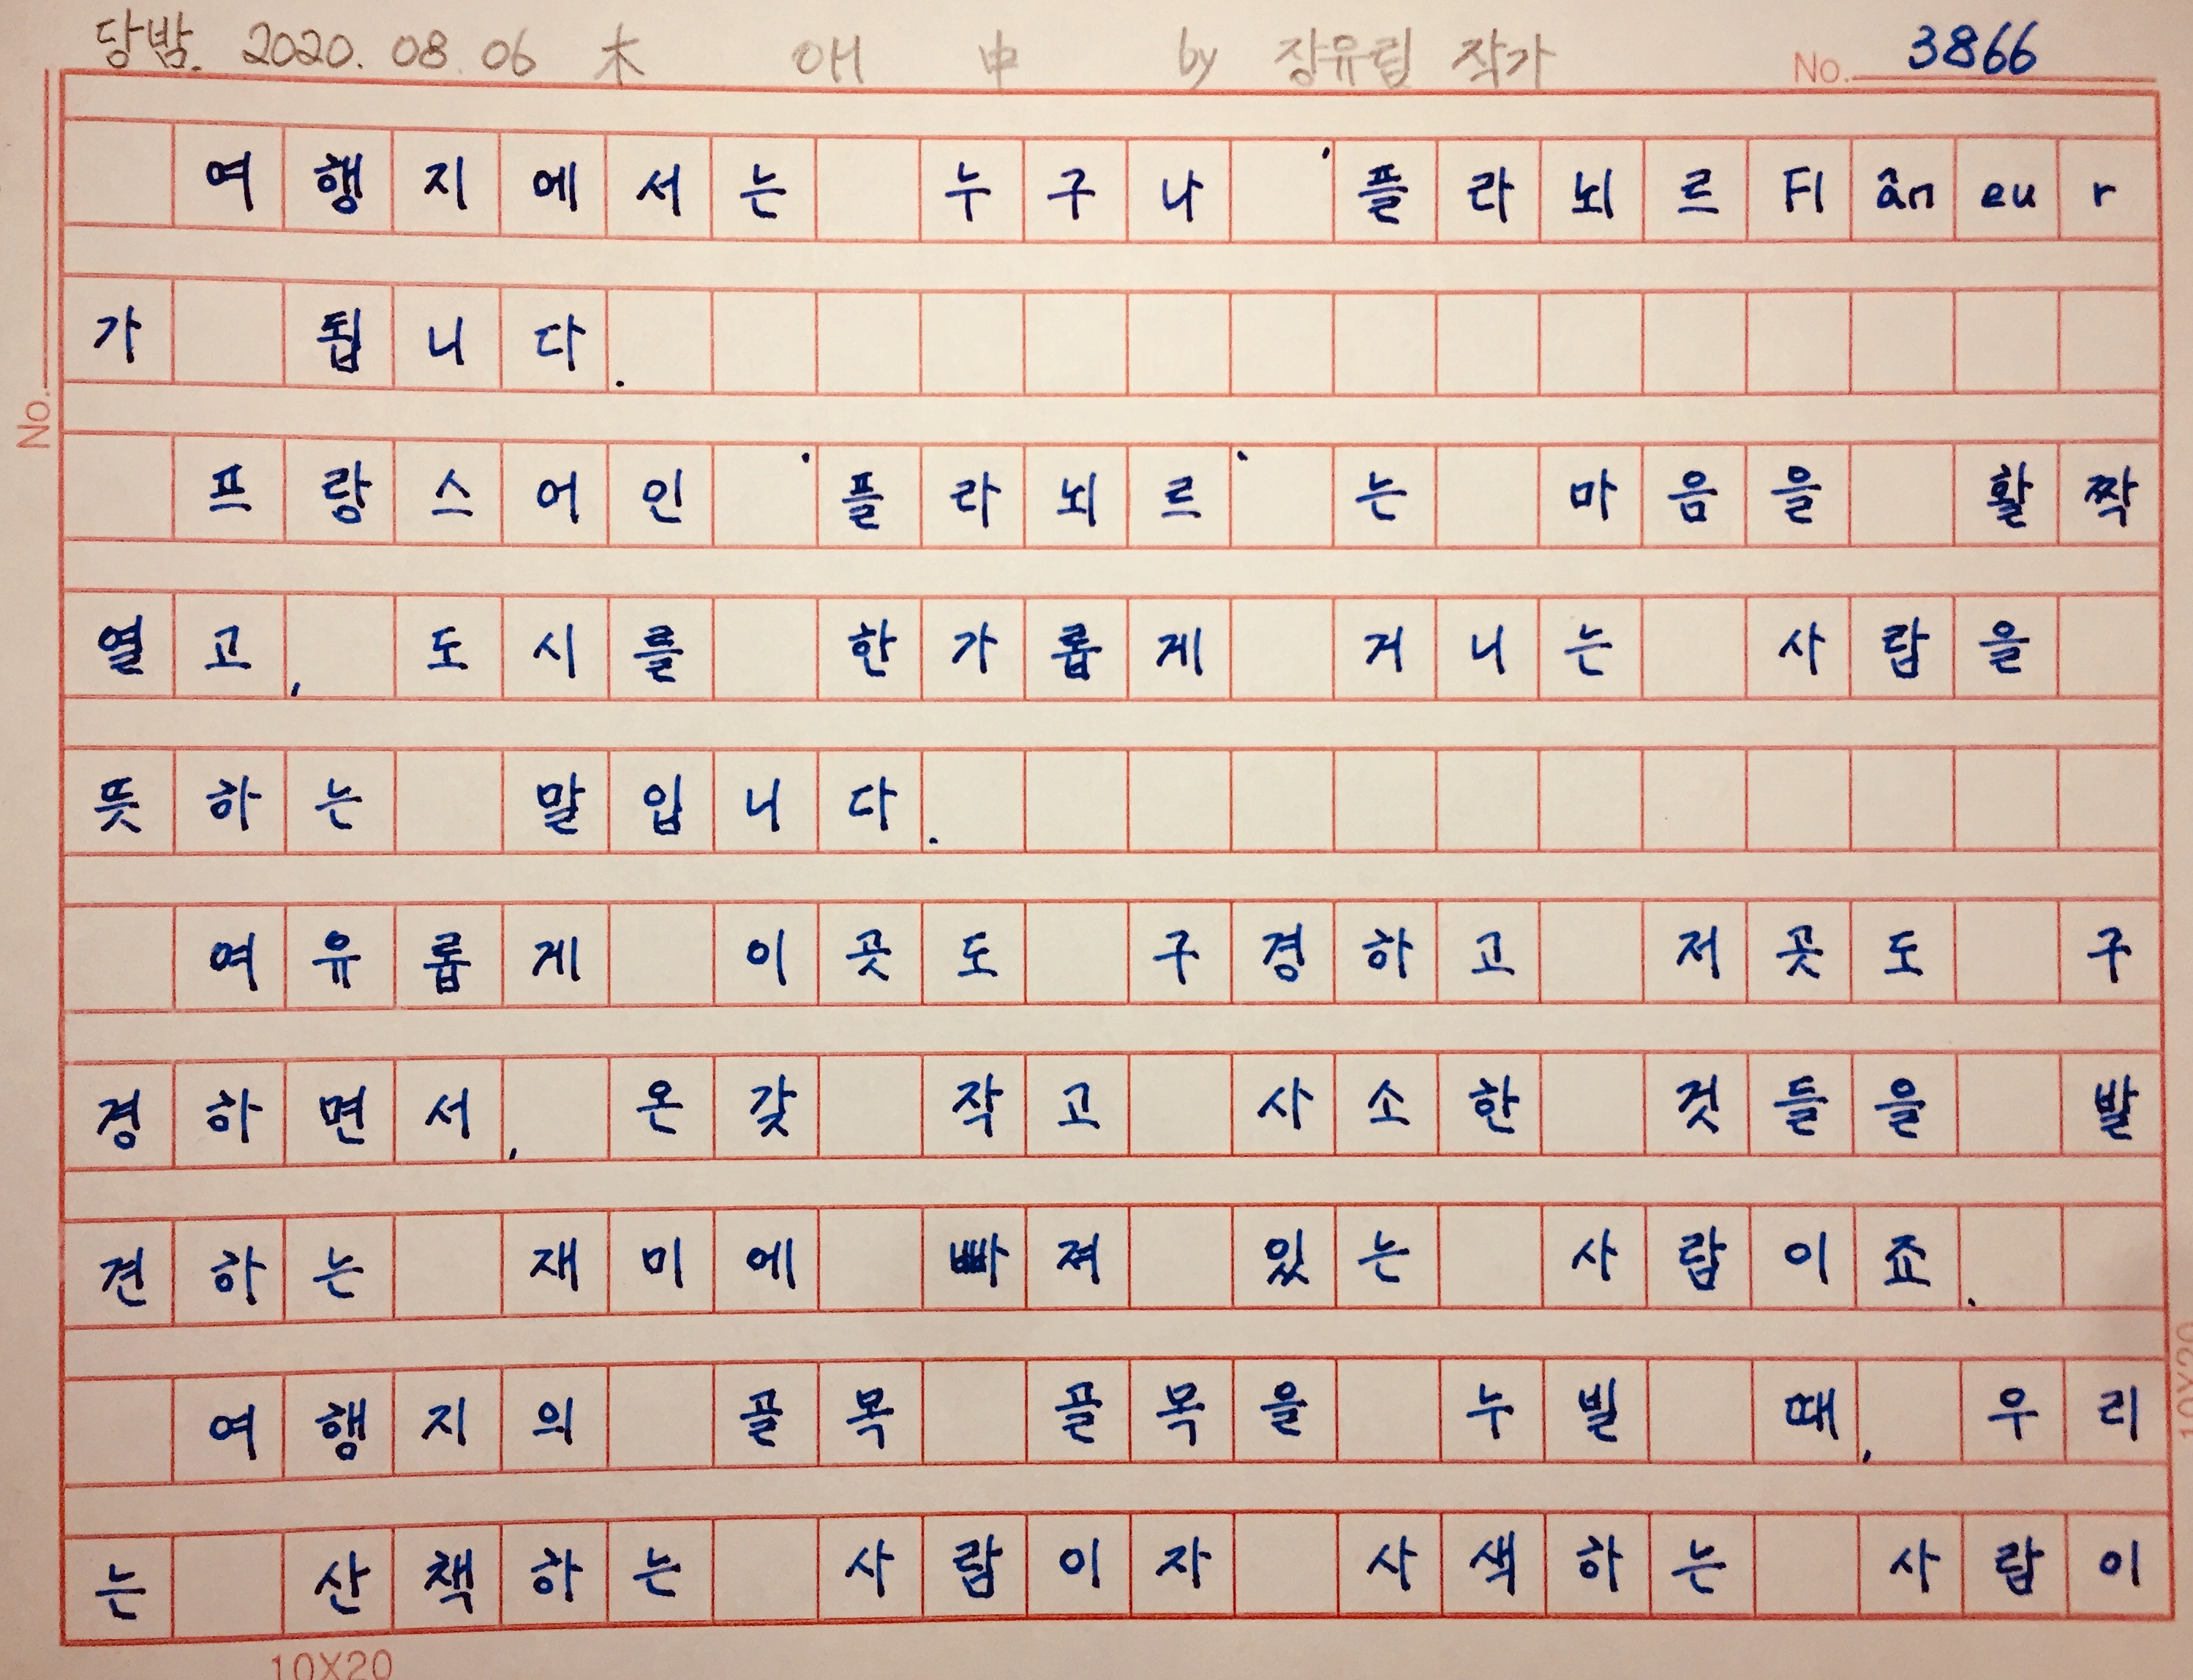 당밤. 2020. 08. 06 木 애 申 by 장유림 작가 No. 3866
여행지에서는 누구나 '플라뇌르Flâneur
가 됩니다.
프랑스어인 '플라뇌르'는 마음을 활짝
열고, 도시를 한가롭게 거니는 사람을
뜻하는 말입니다.
여유롭게 이곳도 구경하고 저곳도 구
경하면서, 온갖 작고 사소한 것들을 발
견하는 재미에 빠져 있는 사람이죠.
여행지의 골목 골목을 누빌 때, 우리
는 산책하는 사람이자 사색하는 사람이
No.
10X20
10X20